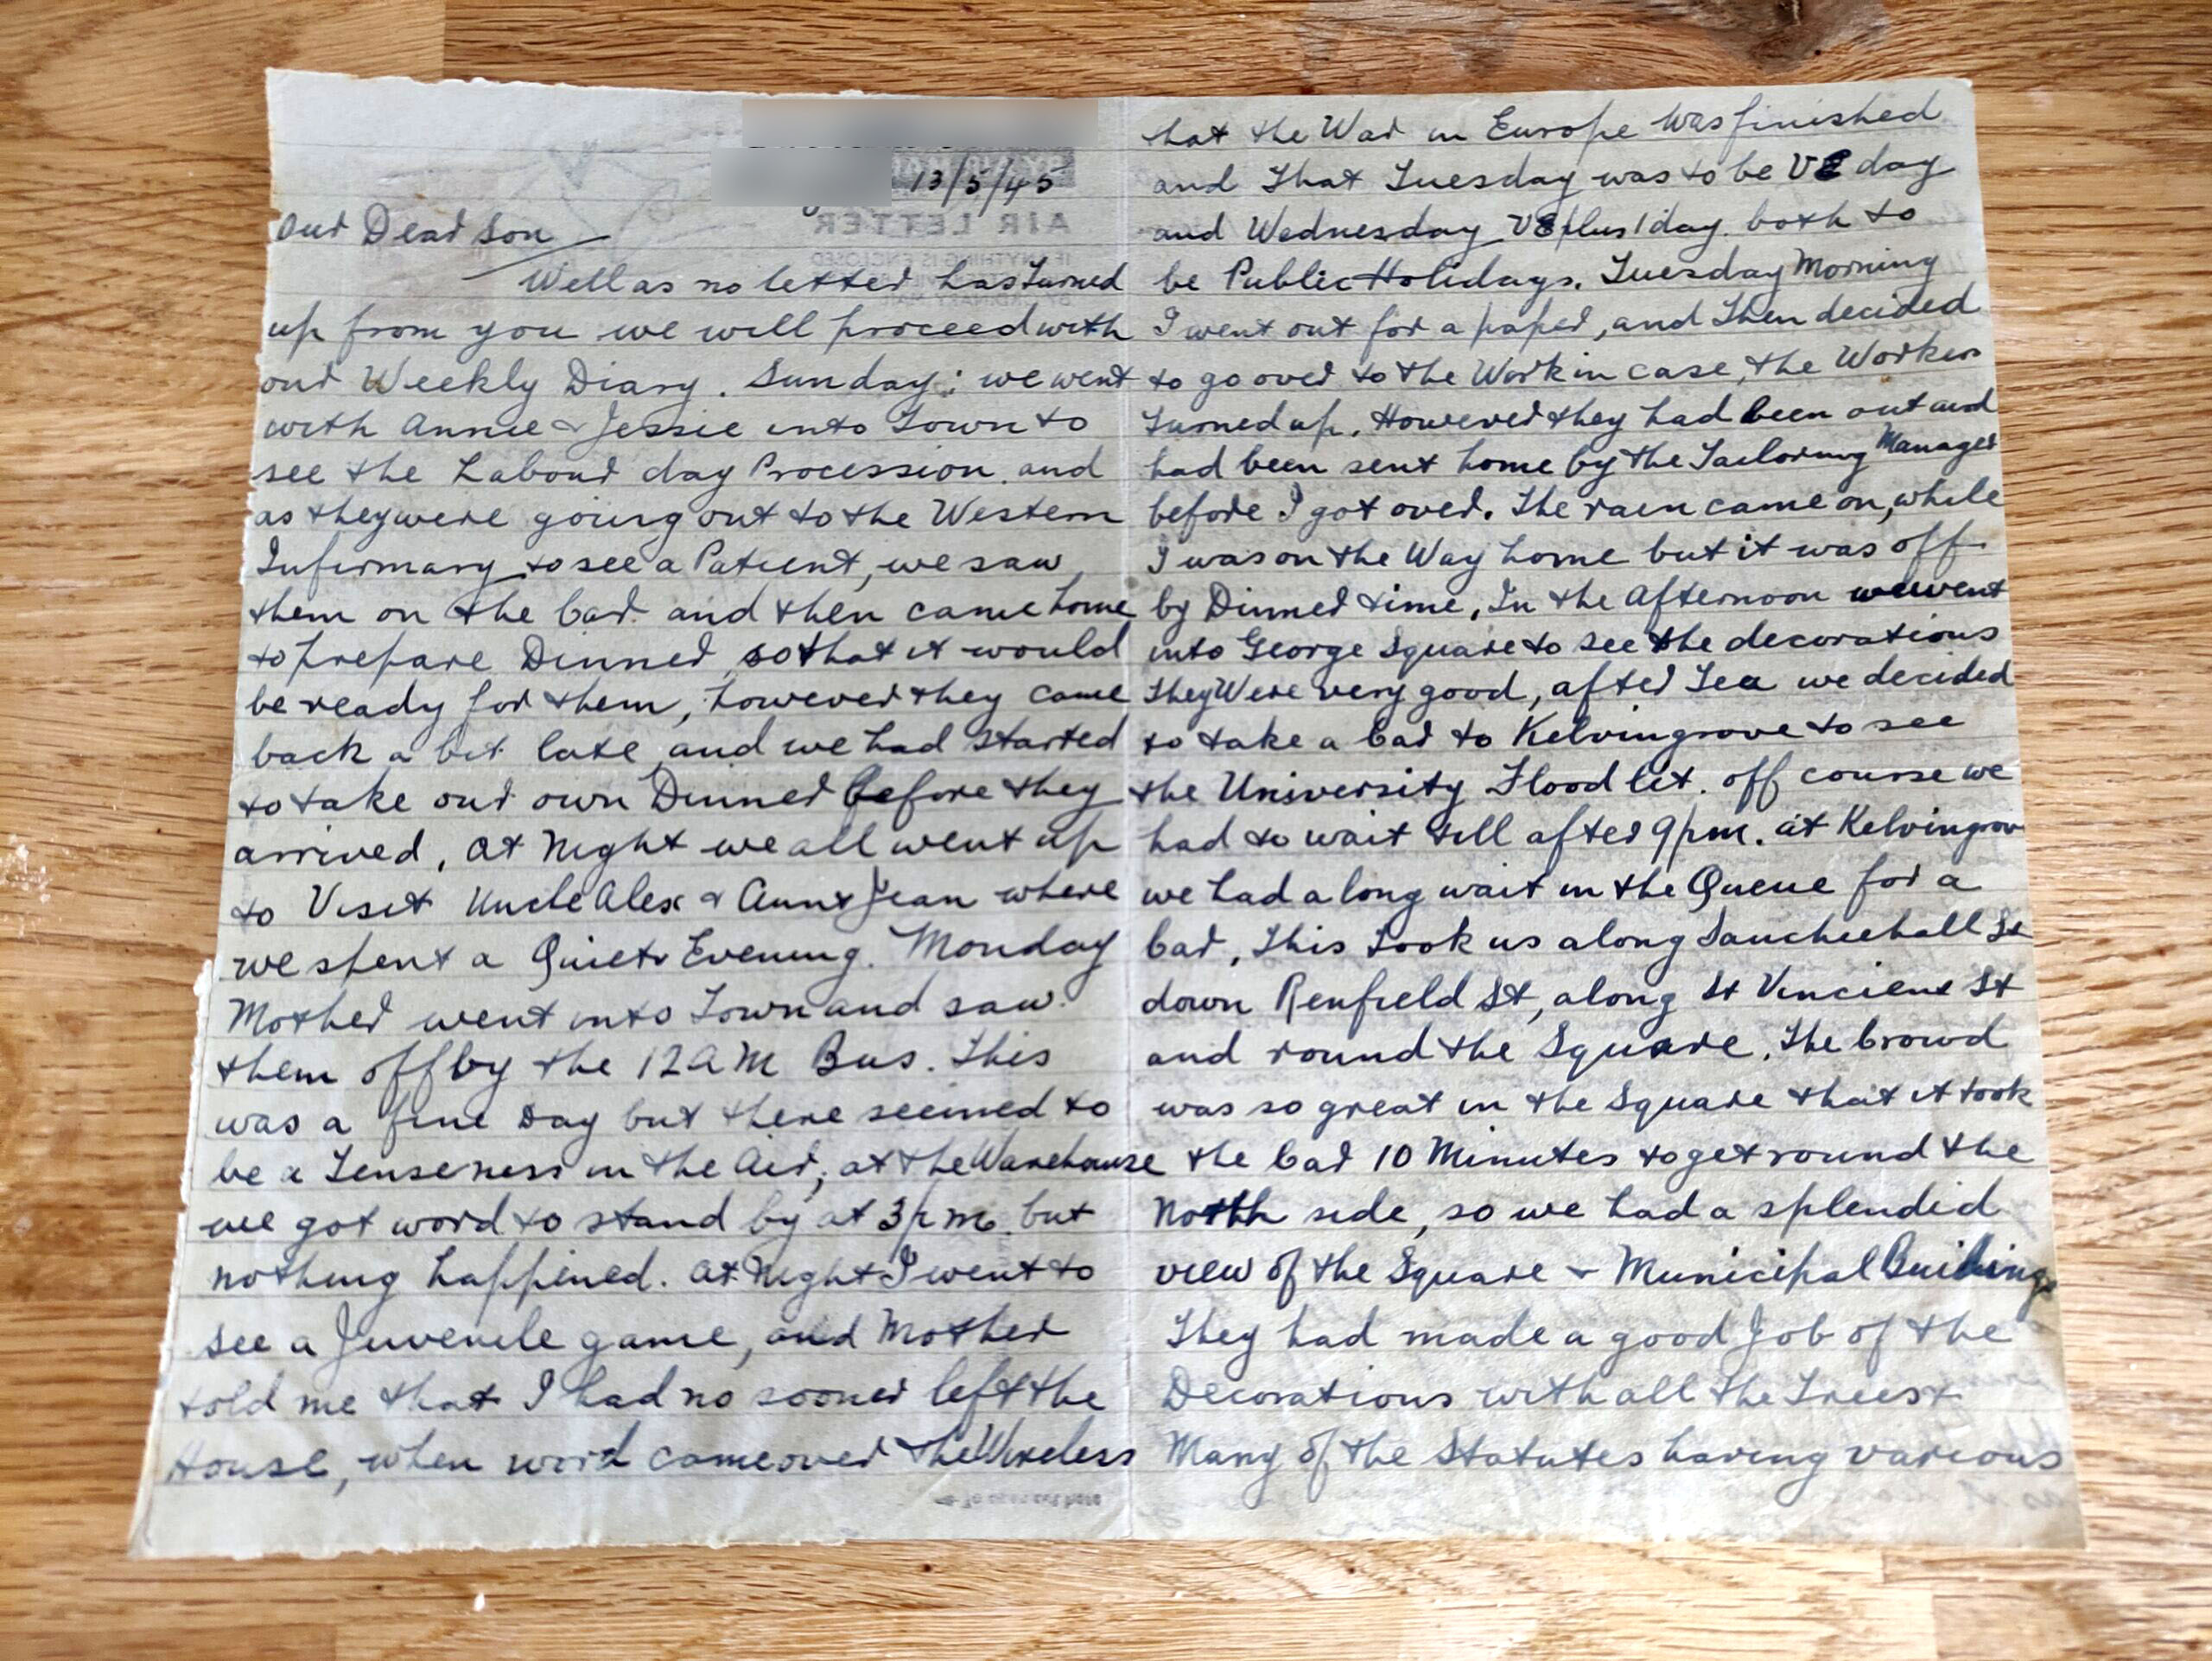 13/5/45
AIR LETTER
Our Dear Son
Well as no letter has turned
up from you we will proceed with
our Weekly Diary. Sunday: we went
with Annie & Jessie into Town to
see the Labour day Procession. and
as they were going out to the Western
Infirmary to see a Patient, we saw
them on the Car. and then came home
to prepare Dinner, so that it would
be ready for them, however they came
back a bit late and we had started
to take our own Dinner before they
arrived, At Night we all went up
to Visit Uncle Alex & Aunt Jean where
we spent a Quiet Evening. Monday
Mother went into Town and saw
them off by the 12 A M Bus. This
was a fine Day but there seemed to
be a Tenseness in the Air, at the Warehouse
we got word to stand by at 3 p m. but
nothing happened. At Night I went to
see a Juvenile game, and Mother
told me that I had no sooner left the
House, when word came over the Wireless
that the War in Europe was finished
and that Tuesday was to be VE day
and Wednesday VE plus 1 day. both to
be Public Holidays. Tuesday Morning
I went out for a paper, and then decided
to go over to the Work in case, the Workers
turned up. However they had been out and
had been sent home by the Tailoring Manager
before I got over. The rain came on, while
I was on the Way home but it was off
by Dinner time, In the Afternoon we went
into George Square to see the decorations
they Were very good, after Tea we decided
to take a Car to Kelvingrove to see
the University Flood lit. off course we
had to wait till after 9 pm. at Kelvingrove
we had a long wait in the Queue for a
Car, this took us along Sauchiehall St
down Renfield St, along St Vincient St
and round the Square. The Crowd
was so great in the Square that it took
the Car 10 Minutes to get round the
North side, so we had a splendid
view of the Square & Municipal Buildings
They had made a good Job of the
Decorations with all the Trees &
Many of the Statutes having various